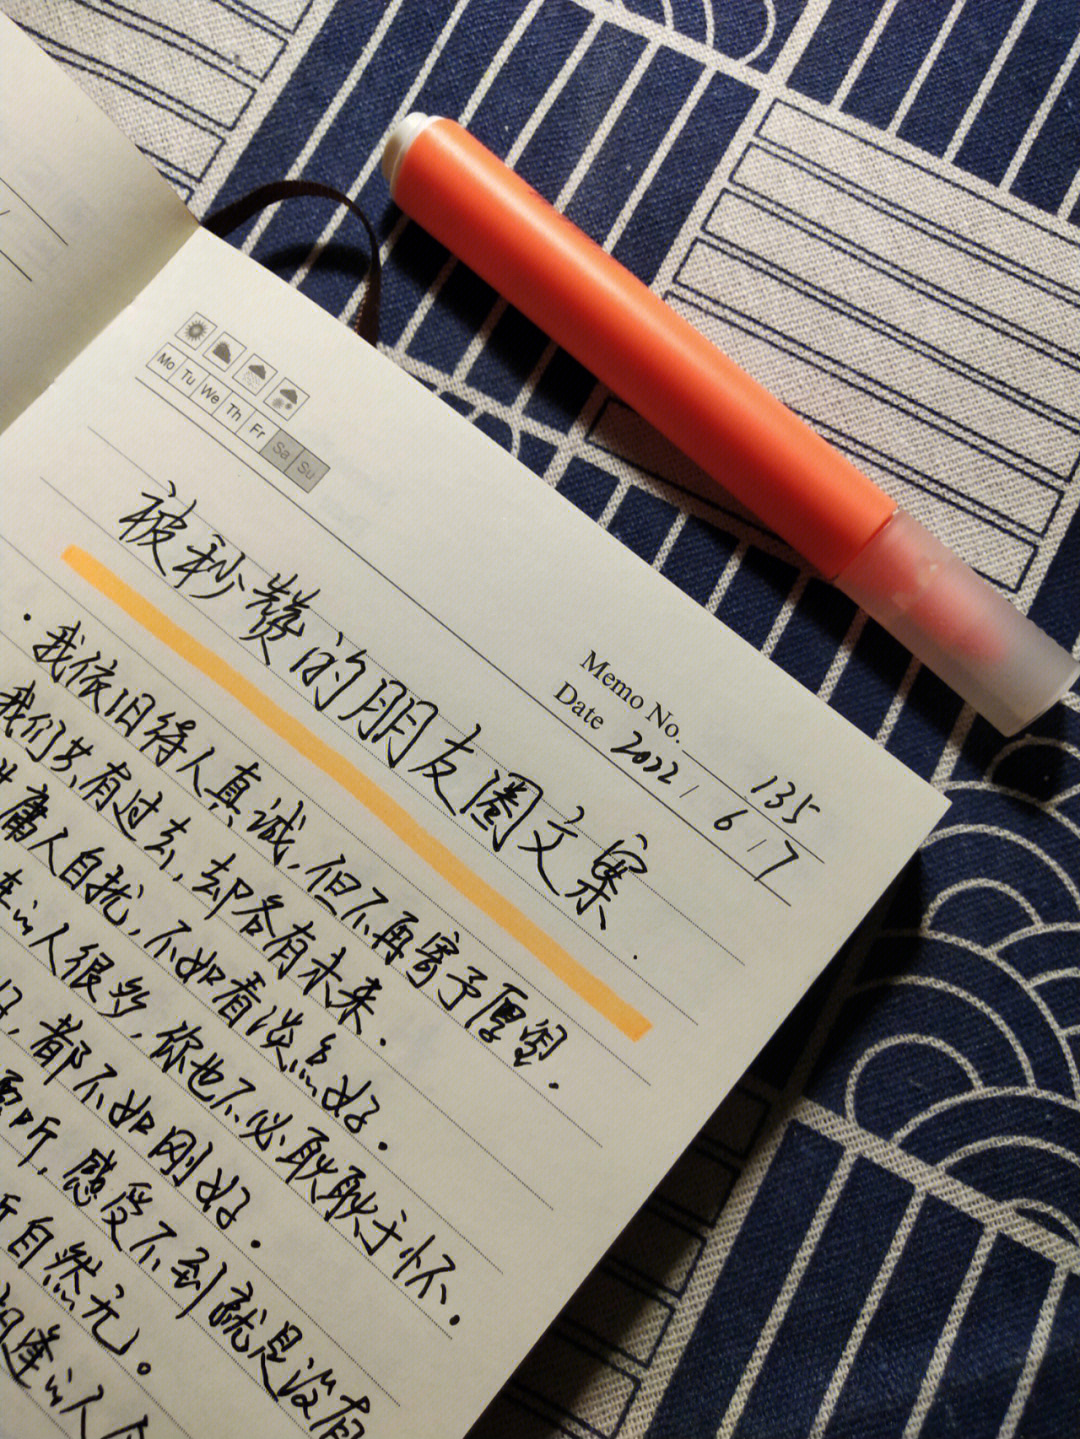 Mo Tu We Th Fr Sa Su
Memo No. 135
Date 2022 / 6 / 7
被秒赞的朋友圈文案.
· 我依旧待人真诚, 但不再寄予厚望.
我们共有过去, 却各有未来.
庸人自扰, 不如看淡点好.
人很多, 你也不必耿耿于怀.
好, 都不如刚好.
听. 感受不到就是没有
自然元。
逢的人